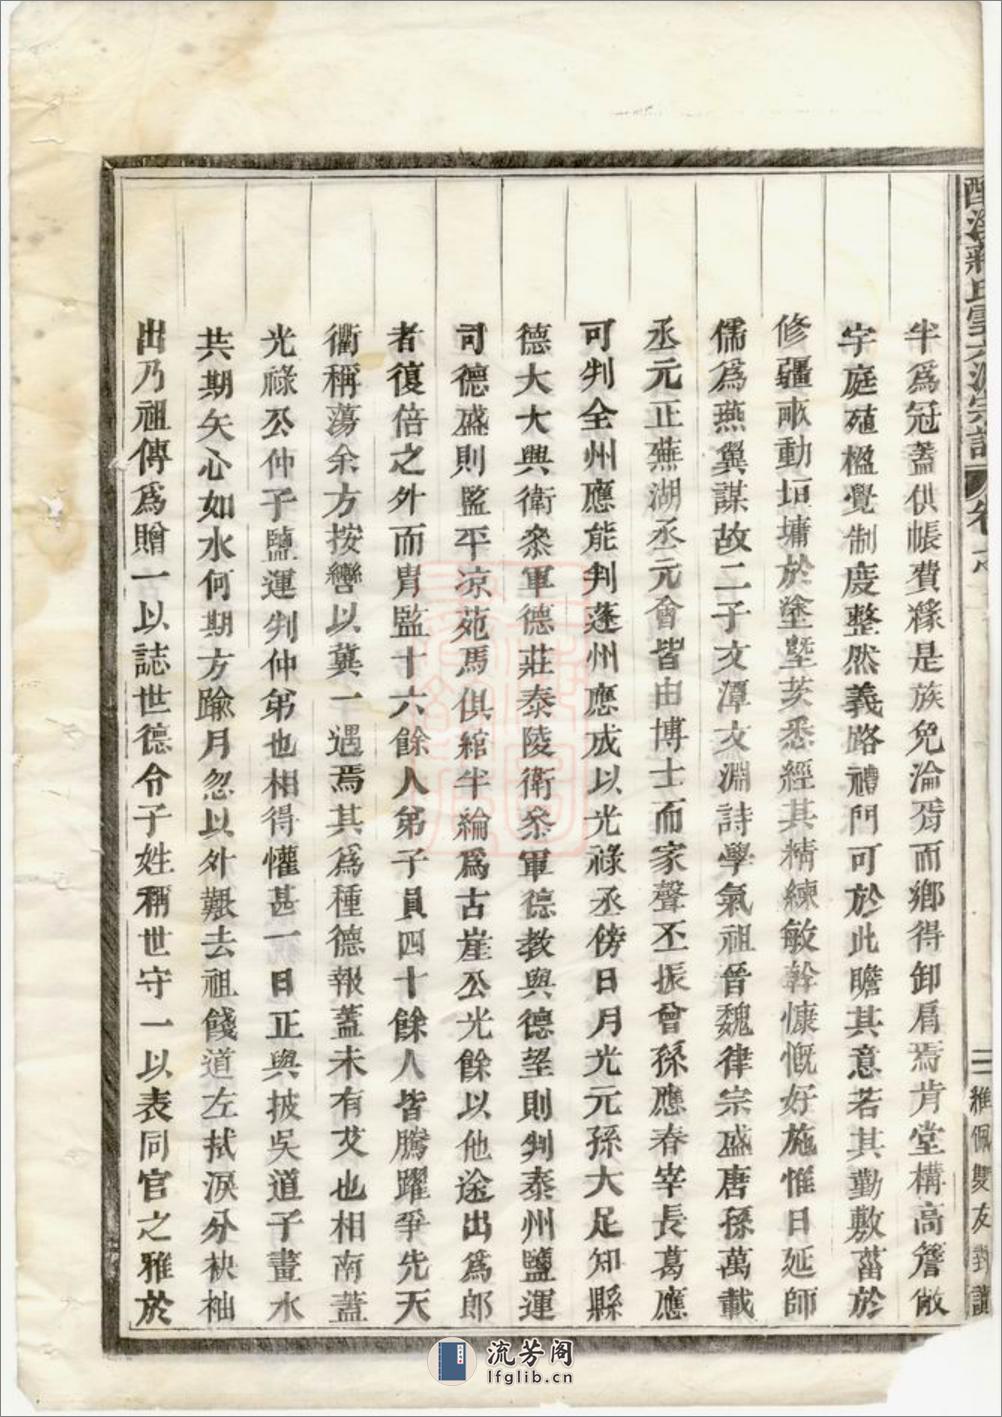 半爲冠蓋供帳費繇是族免淪胥而鄉得卸肩焉肯堂構高簷敞
宇庭殖楹覺制度整然義路禮門可於此瞻其意若其勤敷菑於
修疆畝動垣墉於塗墍茨悉經其精練敏幹慷慨好施惟日延師
儒爲燕翼謀故二子文潭文淵詩學氣祖晉魏律宗盛唐孫萬載
丞元正蕪湖丞元會皆由博士而家聲丕振曾孫應春宰長葛應
可判全州應能判蓬州應成以光祿丞傍日月光元孫大足知縣
德大大興衛叅軍德莊泰陵衛叅軍德教與德望則判泰州鹽運
司德盛則監平凉苑馬俱綰半綸爲古崖公光餘以他途出爲郎
者復倍之外而胄監十六餘人弟子員四十餘人皆騰躍爭先天
衢稱蕩余方按轡以冀一遇焉其爲種德報蓋未有艾也相南蓋
光祿公仲子鹽運判仲弟也相得懽甚一日正與披吳道子畫水
共期矢心如水何期方踰月忽以外艱去祖餞道左拭淚分袂袖
出乃祖傳爲贈一以誌世德令子姓稱世守一以表同官之雅於
蔣氏雲六源宗譜 卷之
三 稚佩雙友對讀
流芳阁
lfglib.cn